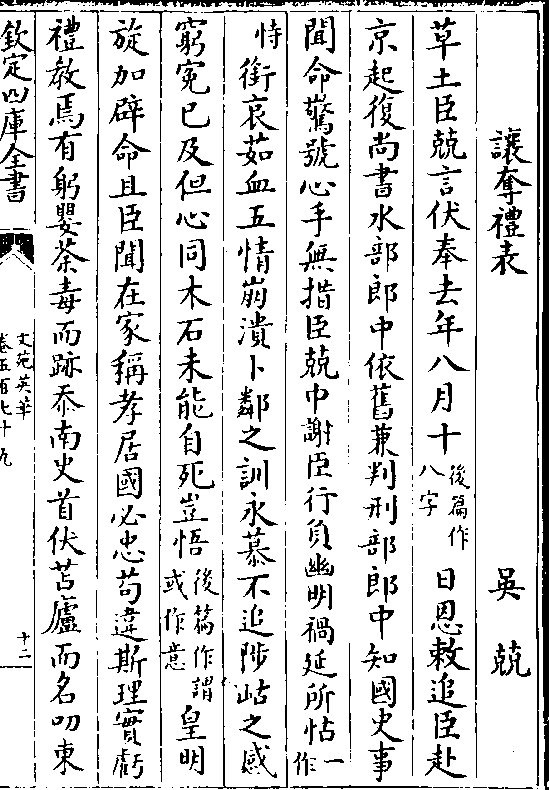 讓奪禮表
吳兢
草土臣兢言伏奉去年八月十後篇作八字日恩敕追臣赴
京起復尚書水部郎中依舊兼判刑部郎中知國史事
聞命驚號心手無措臣兢中謝臣行負幽明禍延所怙一作
恃銜哀茹血五情崩潰卜鄰之訓永慕不追陟岵之感
窮寃已及但心同木石未能自死豈悟後篇作謂或作意皇明
旋加辟命且臣聞在家稱孝居國必忠茍違斯理實虧
禮教焉有躬嬰荼毒而跡忝南史首伏苫廬而名叨東
欽定四庫全書
文苑英華
卷五百七十九
十二